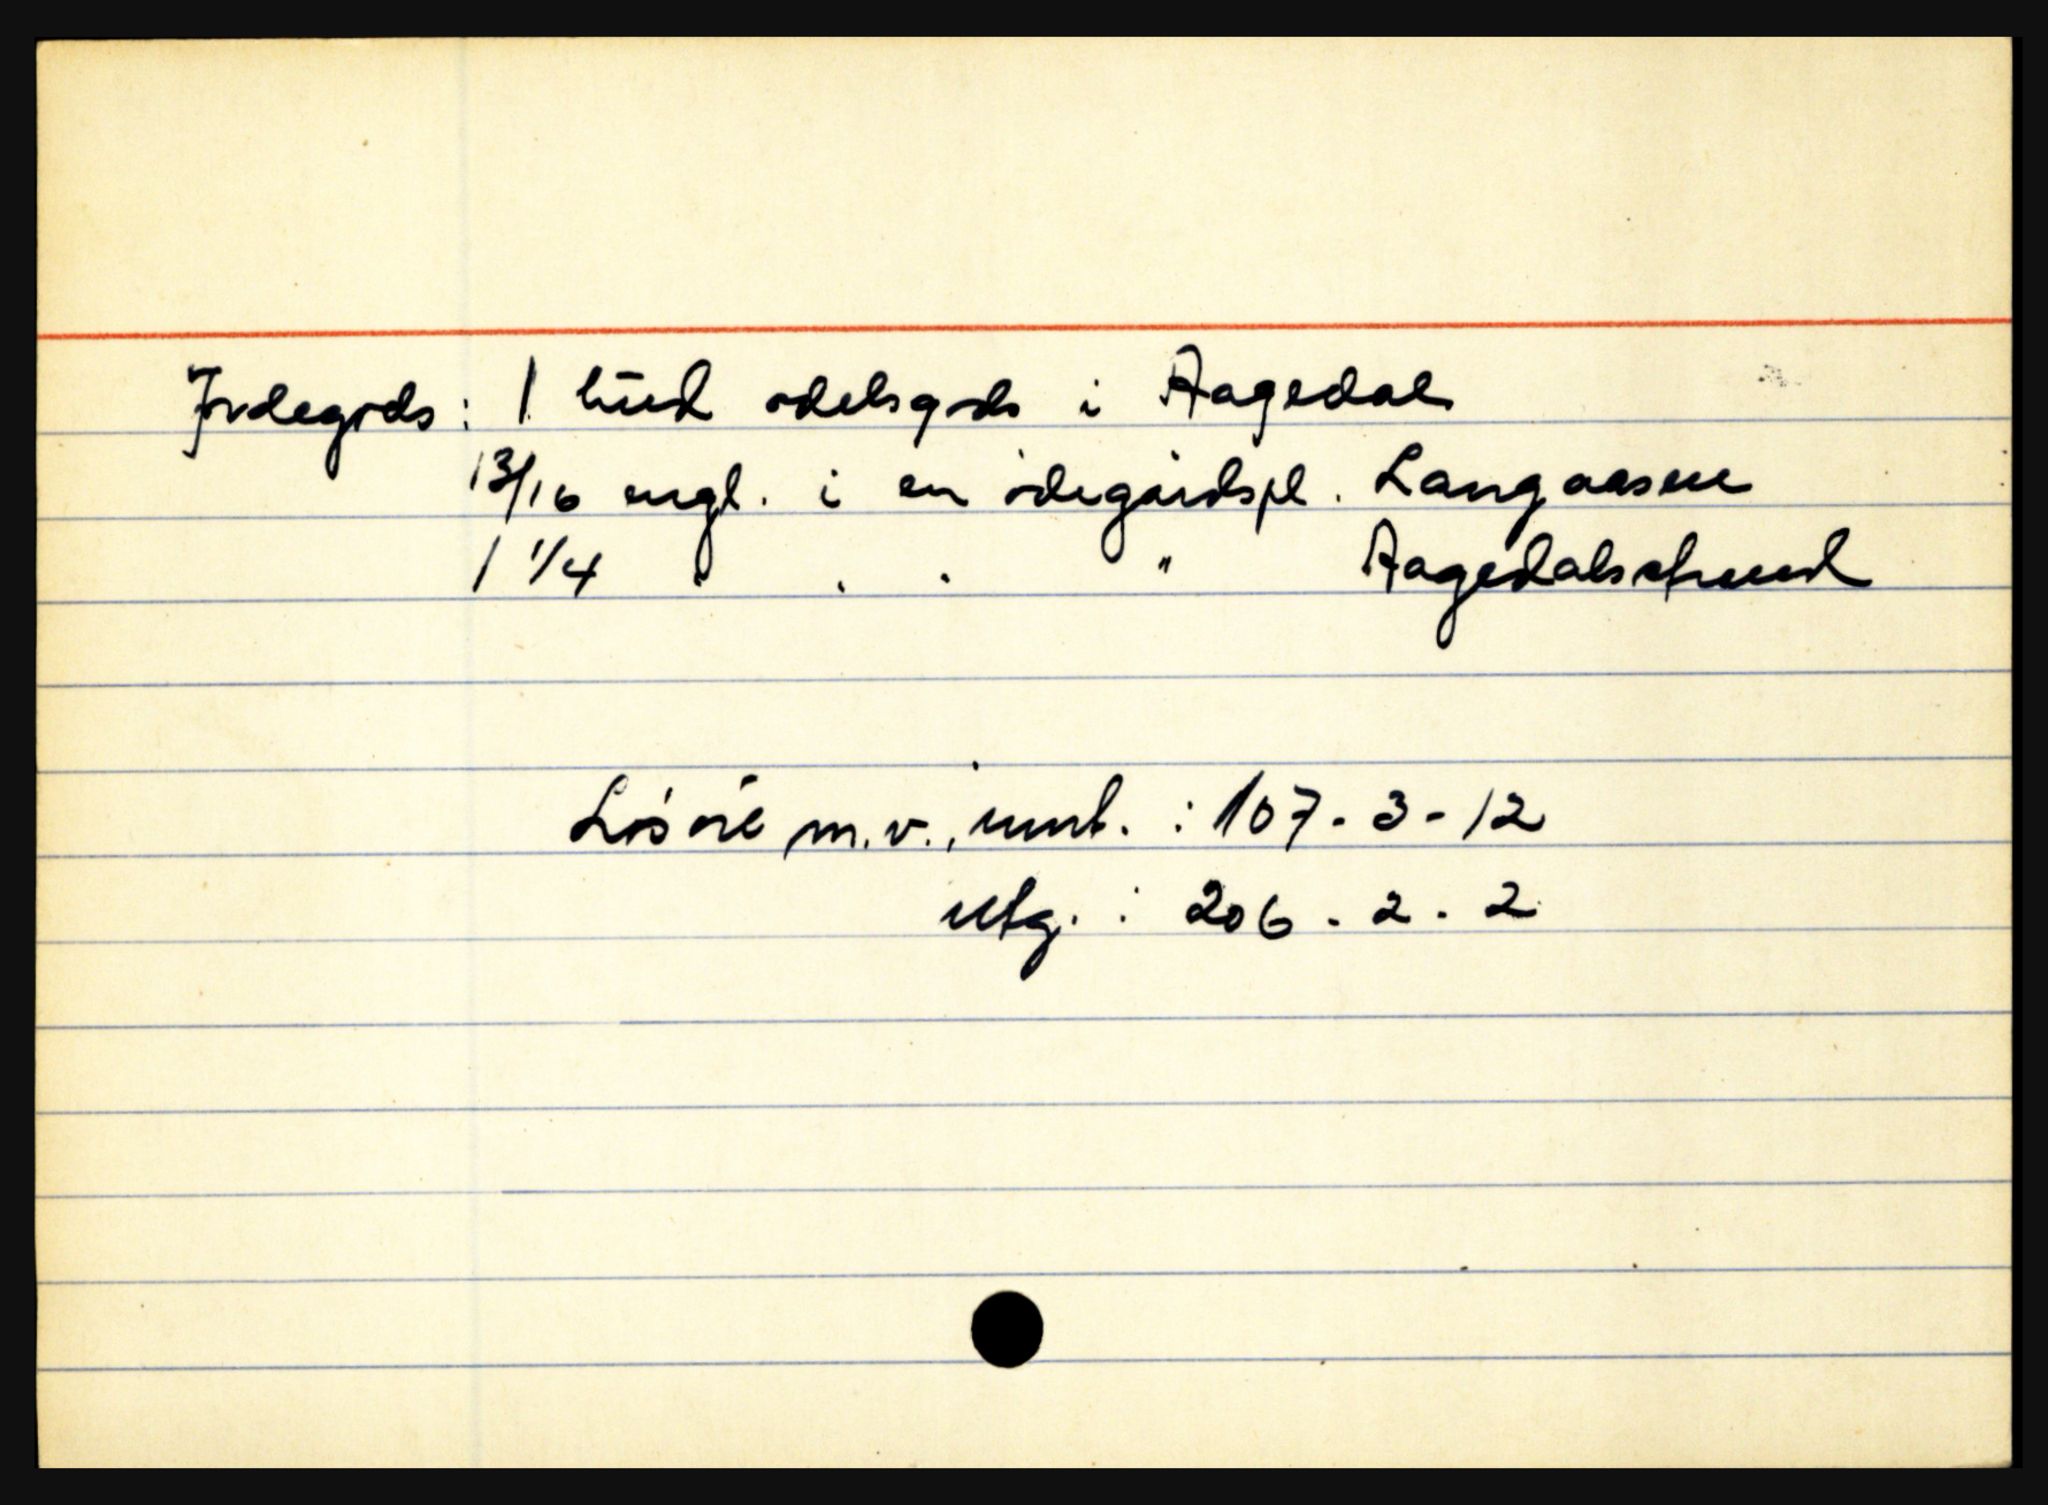 Jordegods: 1 hud odelsgods i Aagedal
13/16 engl. i en ödegårdspl. Langaasene
1 1/4 " " " " Aagedalsstrund
Lösöre m.v., innt. : 107 - 3 - 12
Utg. : 206 - 2 - 2